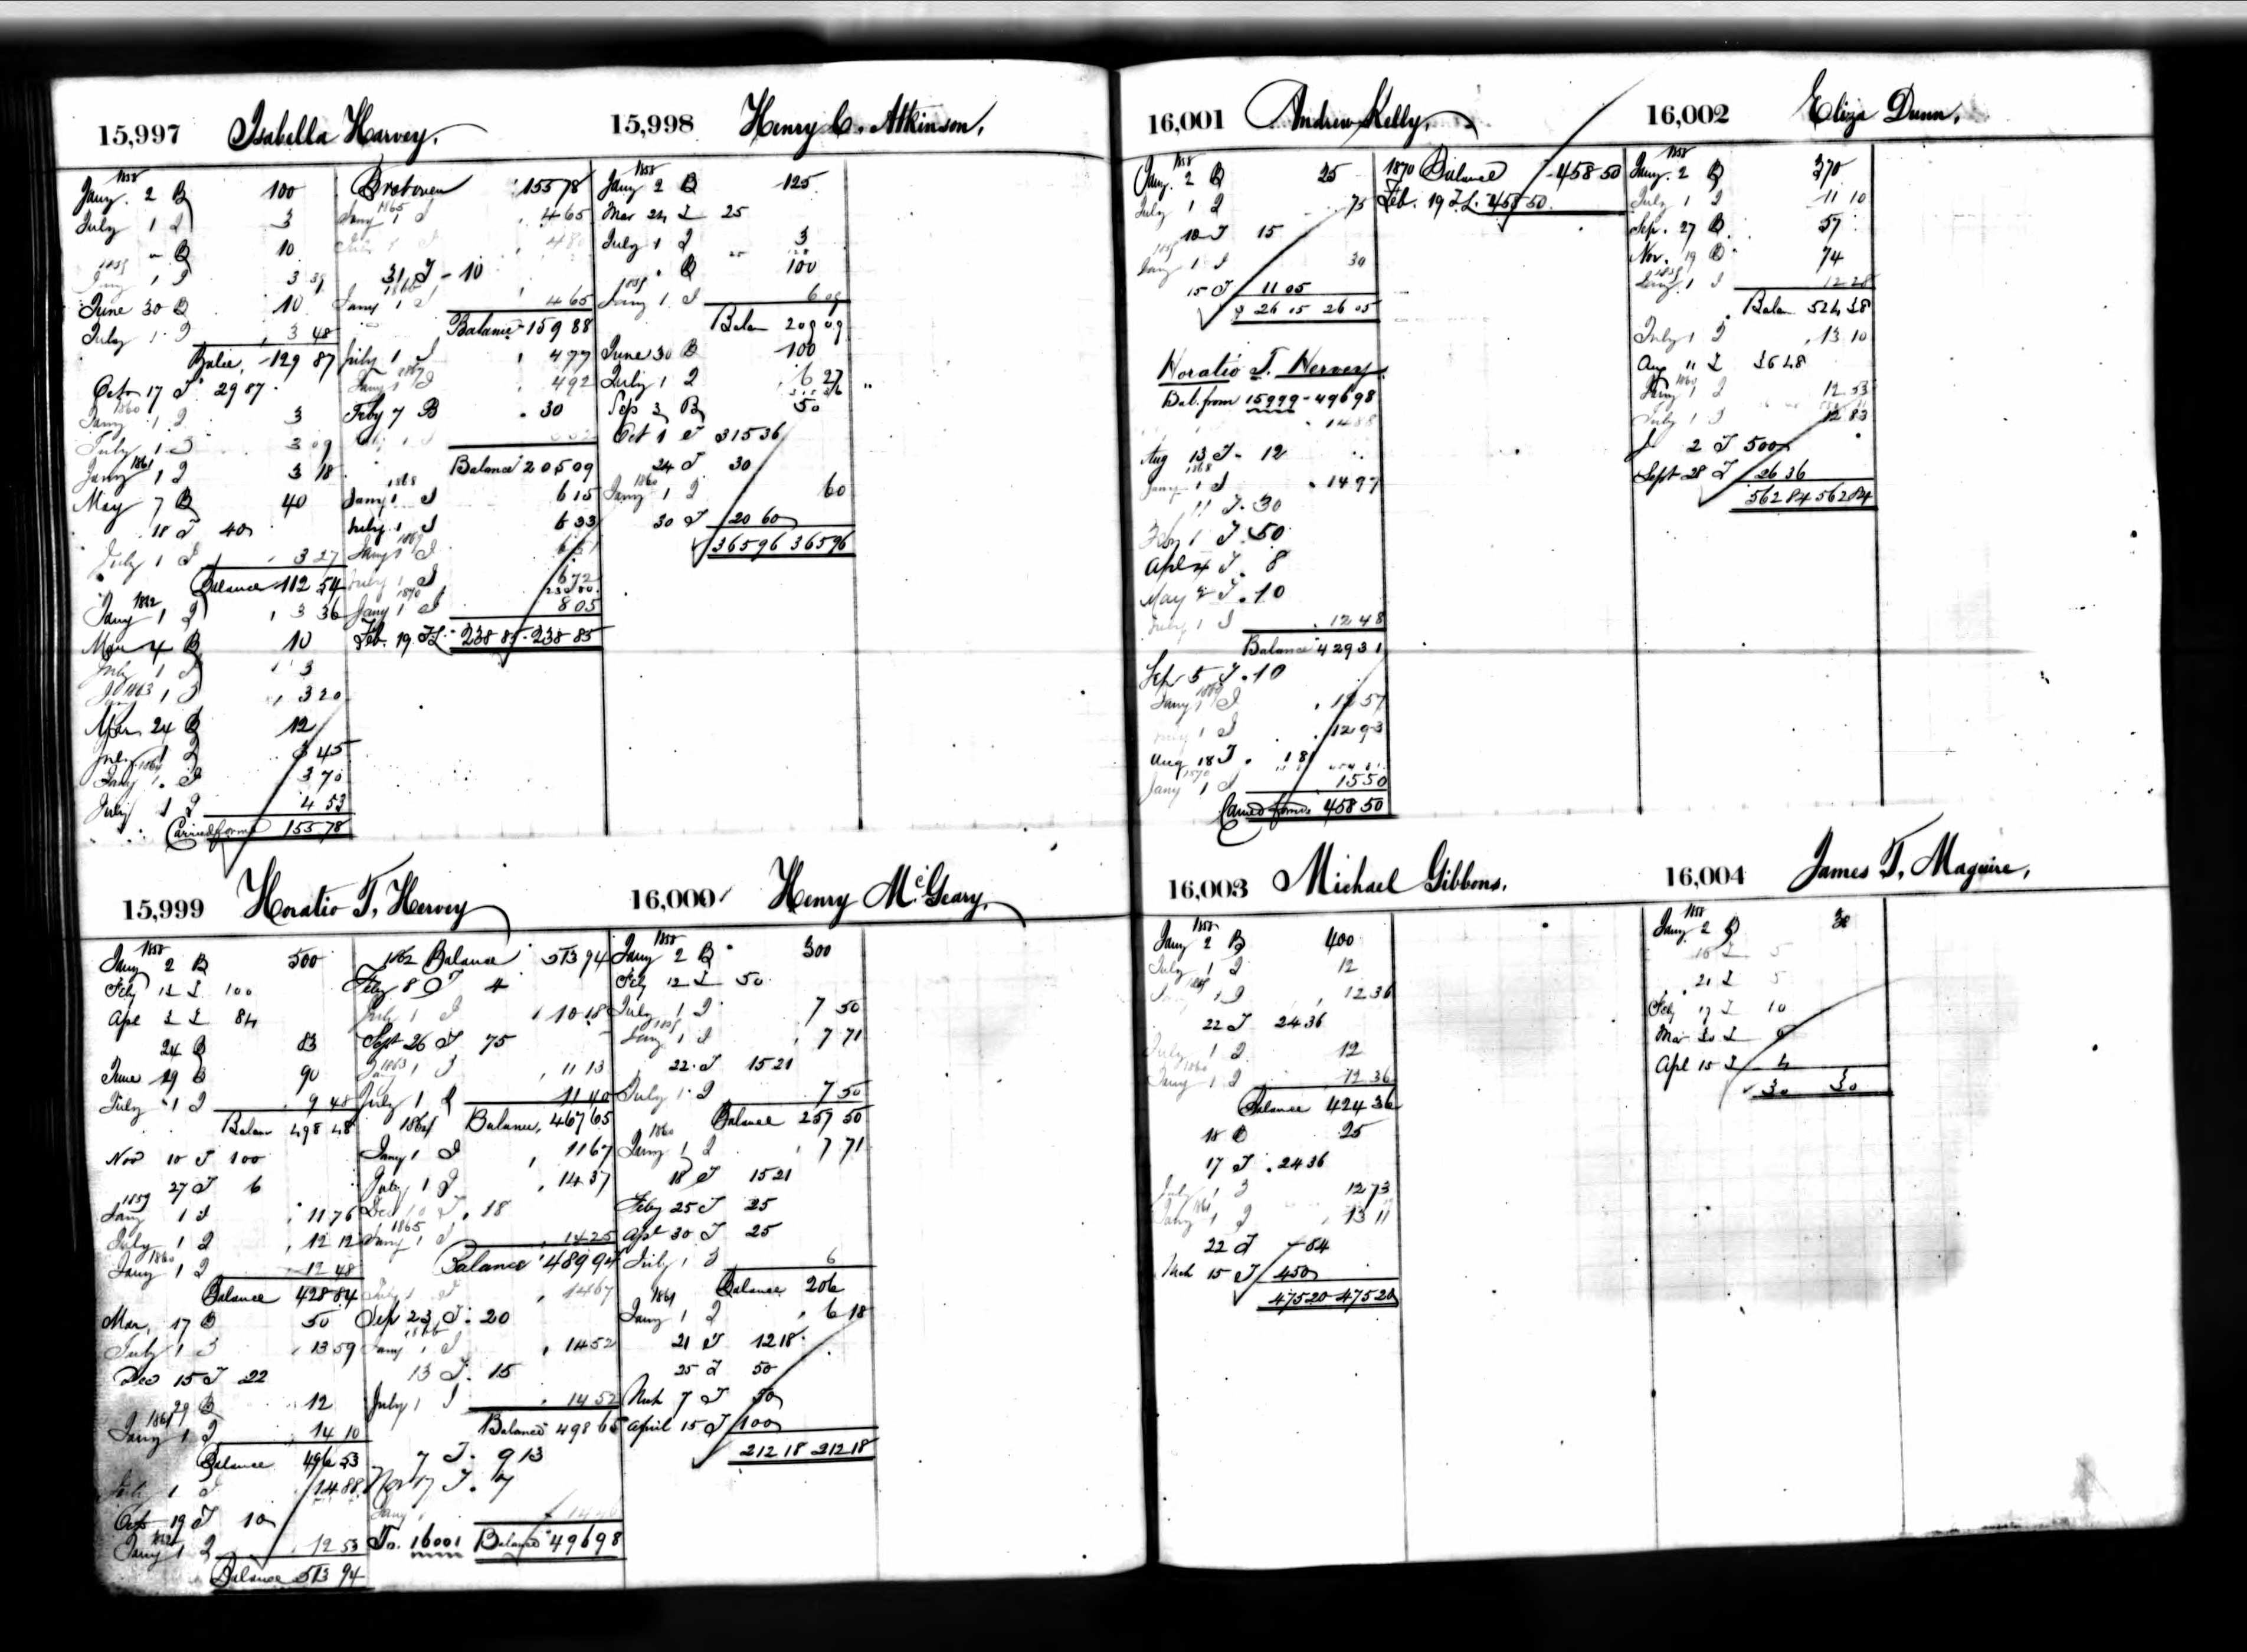 15,997 Isabella Harvey.
1858
Jany. 2 B 100
July 1 I 3
" B 10
1859
Jany 1 I 3 39
June 30 B 10
July 1 I 3 48
Balce, 129 87
Octo 17 T 29 87
1860
Jany 1 I 3
July 1 I 3 09
1861
Jany 1 I 3 18
May 7 B 40
18 T 40
July 1 I 3 27
Balance 112 54
1862
Jany 1 I 3 36
Mar 4 B 10
July 1 I 3
1863
Jany 1 I 3 20
Mar 24 B 12
July 1 I 3 45
1864
Jany 1 I 3 70
July 1 I 4 53
Carried forwd 155 78
Brot over 155 78
1865
Jany 1 I 4 65
July 1 I 4 80
31 T 10
1866
Jany 1 I 4 65
Balance 159 88
July 1 I 4 77
1867
Jany 1 I 4 92
Feby 7 B 30
Balance 205 09
1868
Jany 1 I 6 15
July 1 I 6 33
1869
Jany 1 I 6 51
July 1 I 6 72
1870
Jany 1 I 8 05
Feb. 19 T.L. 238 85 238 85
15,998 Henry C. Atkinson,
1858
Jany 2 B 125
Mar 24 I 25
July 1 I 3
" B 100
1859
Jany 1 I 6 09
Balan 209 09
June 30 B 100
July 1 I 6 27
Sep 3 B 50
Oct 1 T 315 36
24 T 30
1860
Jany 1 I 60
30 T 20 60
365 96 365 96
15,999 Horatio T. Hervey
1858
Jany 2 B 500
Feby 12 I 100
Apl 2 I 84
24 B 83
June 29 B 90
July 1 I 9 48
Balan 498 48
Nov 10 T 100
27 T 6
1859
Jany 1 I 11 76
July 1 I 12 12
1860
Jany 1 I 12 48
Balance 428 84
Mar, 17 B 50
July 1 I 13 59
Dec 15 T 22
29 B 12
1861
Jany 1 I 14 10
Balance 496 53
July 1 I 14 88
Octo 19 T 10
1862
Jany 1 I 12 53
Balance 513 94
1862 Balance 513 94
Feby 8 T 4
July 1 I 10 18
Sept 26 T 75
1863
Jany 1 I 11 13
July 1 I 11 40
1864 Balance, 467 65
Jany 1 I 11 67
July 1 I 14 37
Dec 10 T. 18
1865
Jany 1 I 14 25
Balance 489 94
July 1 I 14 67
Sep 23 T. 20
1866
Jany 1 I 14 52
13 T. 15
July 1 I 14 52
Balance 498 65
7 T. 9 13
Nov 17 T. 7
Jany
To. 16001 Balance 496 98
16,000 Henry McGeary,
1858
Jany 2 B 300
Feby 12 I 50
July 1 I 7 50
1859
Jany 1 I 7 71
22 T 15 21
July 1 I 7 50
Balance 257 50
1860
Jany 1 I 7 71
18 T 15 21
Feby 25 T 25
Apl 30 T 25
July 1 I 6
1861 Balance 206
Jany 1 I 6 18
21 T 12 18
25 T 50
Mch 7 T 50
April 15 T 100
212 18 212 18
16,001 Andrew Kelly,
1858
Jany. 2 B 25
July 1 I 75
10 T 15
1859
Jany 1 I 30
15 T 11 05
26 05 26 05
Horatio T. Hervey.
Bal. from 15999 - 496 98
14 88
Aug 13 T. 12
1868
Jany 1 I 14 97
11 T. 30
Feby 1 T. 50
Apl 4 T. 8
May 2 T. 10
July 1 I 12 48
Balance 429 31
Sep 5 T. 10
1869
Jany 1 I 12 57
July 1 I 12 93
Aug 18 T. 1 81
1870
Jany 1 I 15 50
Carried forwd. 458 50
1870 Balance 458 50
Feb. 19 T.L. 458 50
16,002 Eliza Dunn,
1858
Jany. 2 B 370
July 1 I 11 10
Sep. 27 B 57
Nov. 19 B 74
1859
Jany 1 I 12 28
Balan 524 38
July 1 I 13 10
Aug " I 36 48
1860
Jany 1 I 12 53
July 1 I 12 83
2 T 500
Sept 28 T 26 36
562 84 562 84
16,003 Michael Gibbons,
1858
Jany 2 B 400
July 1 I 12
1859
Jany 1 I 12 36
22 T 24 36
July 1 I 12
1860
Jany 1 I 12 36
Balance 424 36
18 B 25
17 T 24 36
July 1 I 12 73
1861
Jany 1 I 13 11
22 T 84
Mch 15 T 450
475 20 475 20
16,004 James T. Maguire,
1858
Jany 2 B 30
16 I 5
21 I 5
Feby 17 I 10
Mar 30 I 6
Apl 15 I 4
30 30